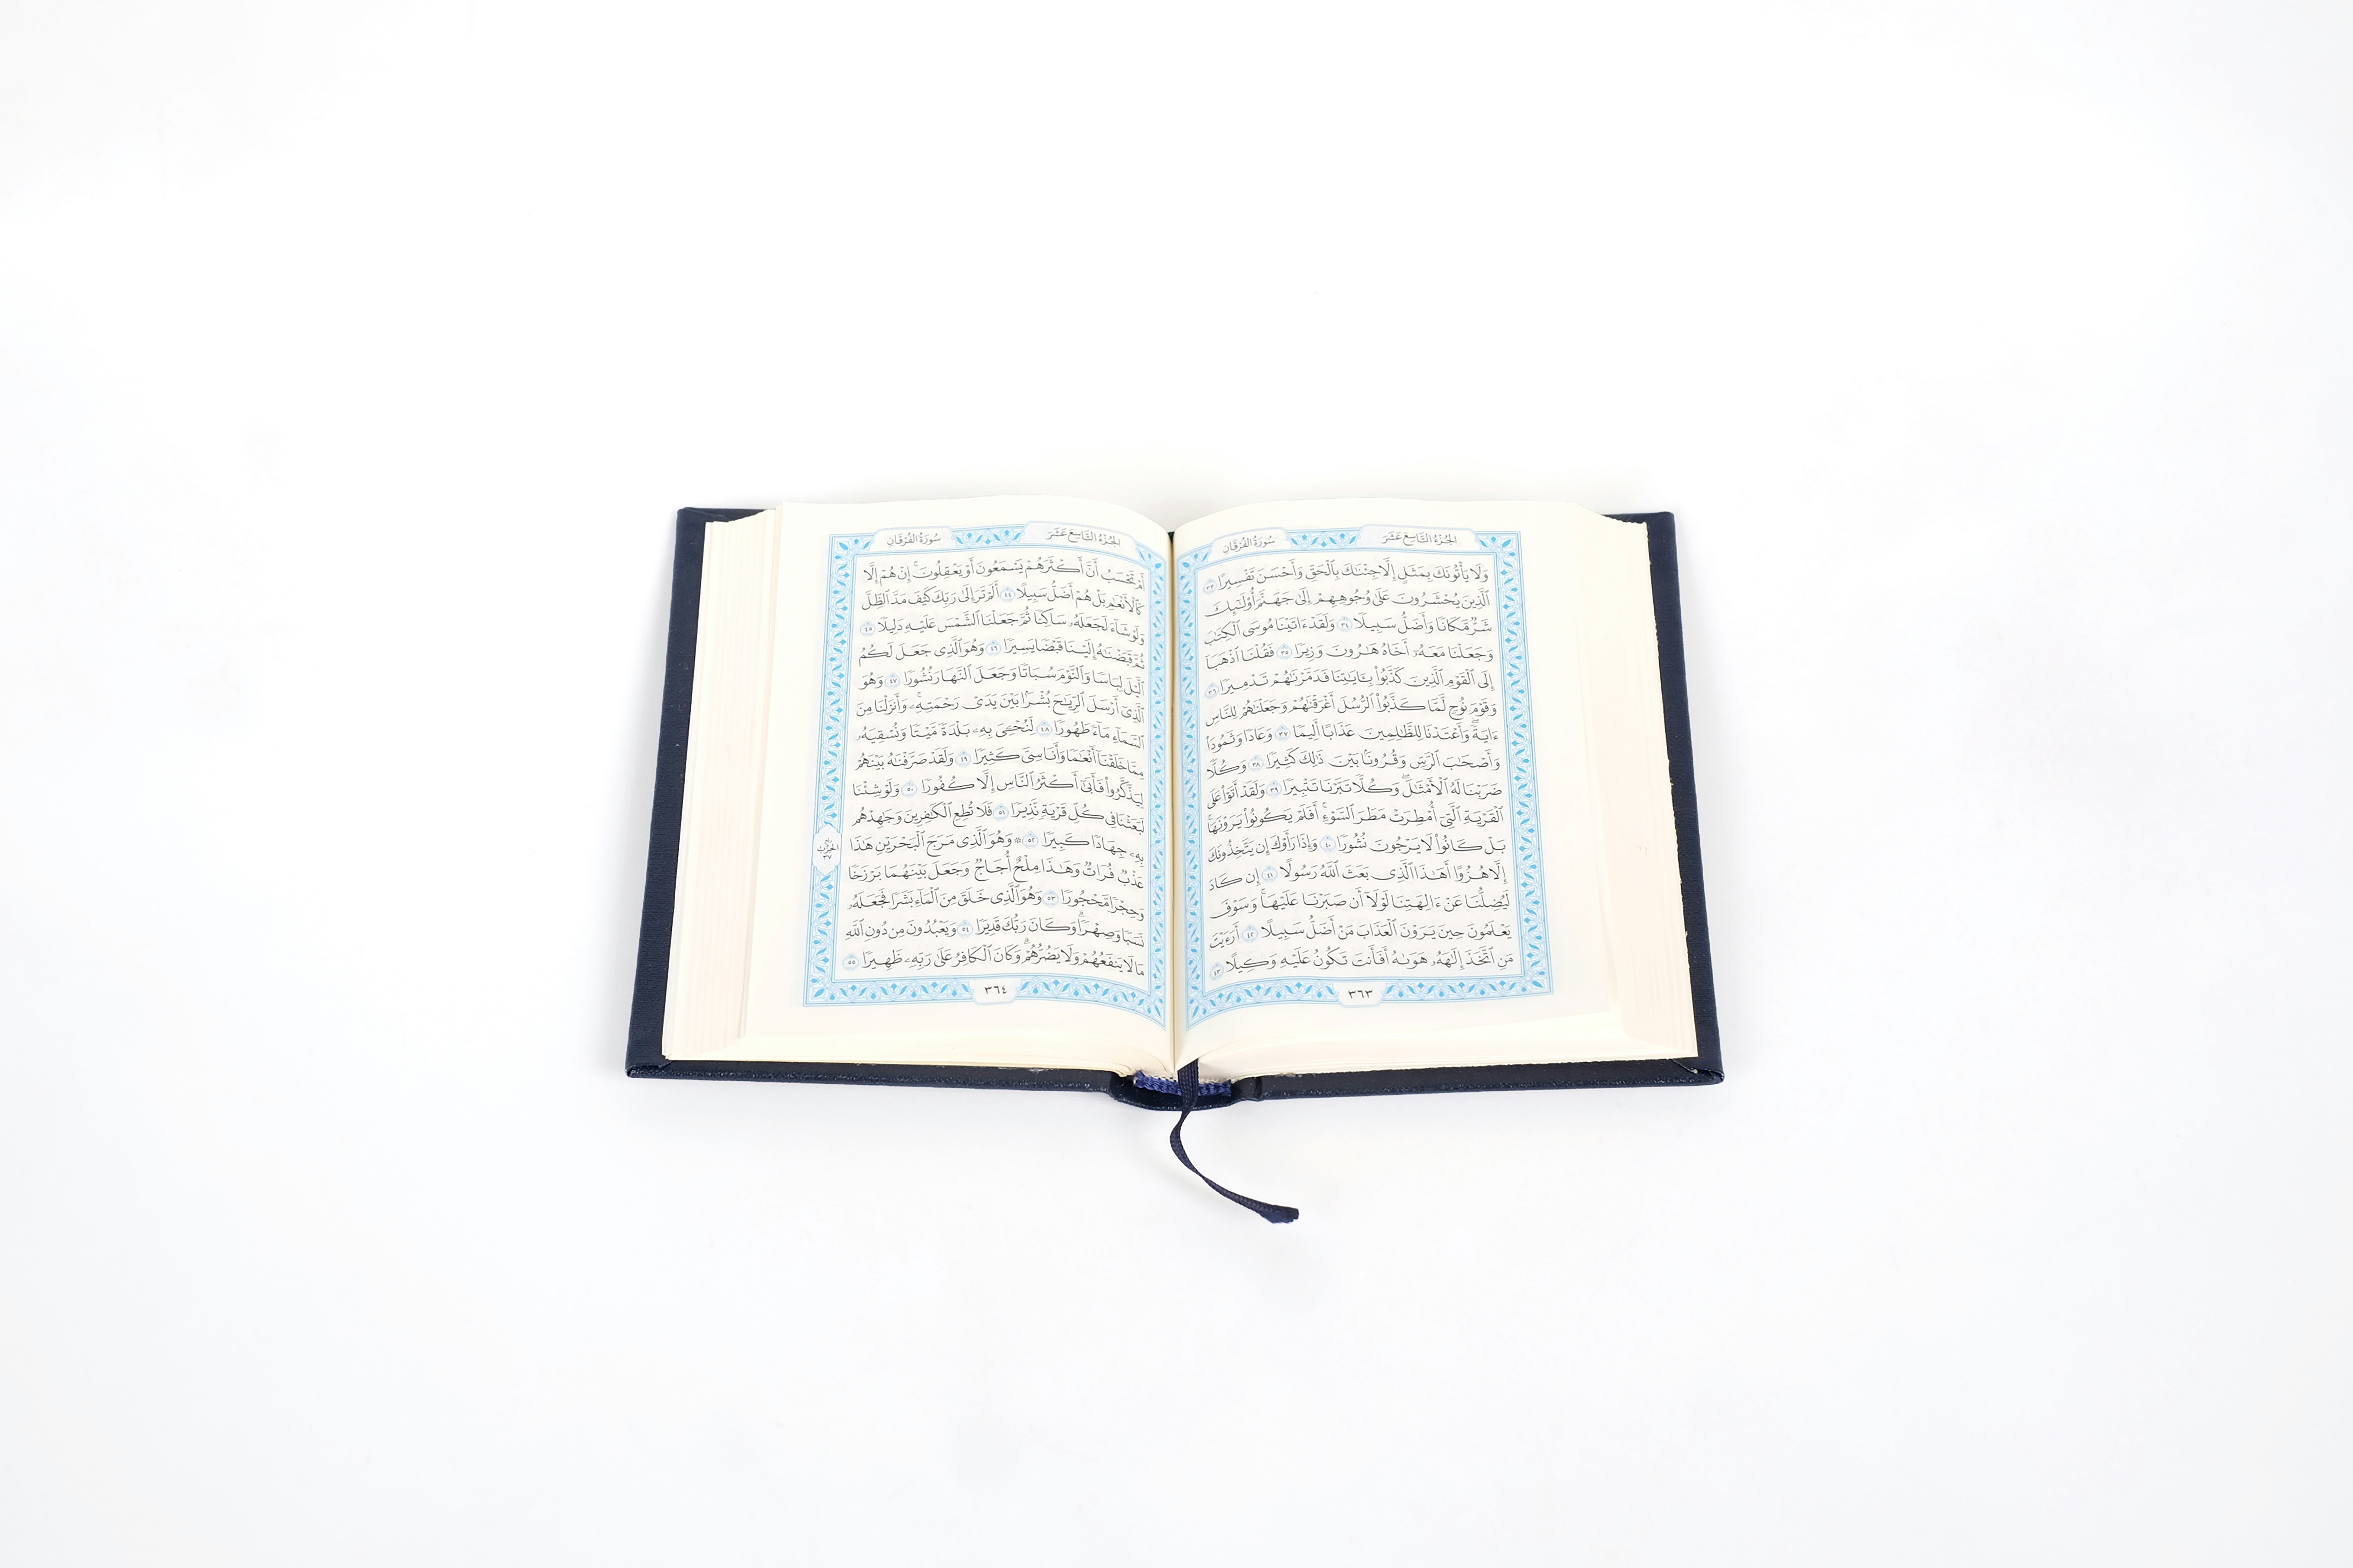 الجُزْءُ التَّاسِعَ عَشَرَ
سُورَةُ الفُرْقَانِ
وَلَا يَأْتُونَكَ بِمَثَلٍ إِلَّا جِئْنَٰكَ بِٱلْحَقِّ وَأَحْسَنَ تَفْسِيرًا ٣٣
ٱلَّذِينَ يُحْشَرُونَ عَلَىٰ وُجُوهِهِمْ إِلَىٰ جَهَنَّمَ أُو۟لَٰٓئِكَ
شَرٌّ مَّكَانًا وَأَضَلُّ سَبِيلًا ٣٤ وَلَقَدْ ءَاتَيْنَا مُوسَى ٱلْكِتَٰبَ
وَجَعَلْنَا مَعَهُۥٓ أَخَاهُ هَٰرُونَ وَزِيرًا ٣٥ فَقُلْنَا ٱذْهَبَآ
إِلَى ٱلْقَوْمِ ٱلَّذِينَ كَذَّبُوا۟ بِـَٔايَٰتِنَا فَدَمَّرْنَٰهُمْ تَدْمِيرًا ٣٦
وَقَوْمَ نُوحٍ لَّمَّا كَذَّبُوا۟ ٱلرُّسُلَ أَغْرَقْنَٰهُمْ وَجَعَلْنَٰهُمْ لِلنَّاسِ
ءَايَةً ۖ وَأَعْتَدْنَا لِلظَّٰلِمِينَ عَذَابًا أَلِيمًا ٣٧ وَعَادًا وَثَمُودَا۟
وَأَصْحَٰبَ ٱلرَّسِّ وَقُرُونًۢا بَيْنَ ذَٰلِكَ كَثِيرًا ٣٨ وَكُلًّا
ضَرَبْنَا لَهُ ٱلْأَمْثَٰلَ ۖ وَكُلًّا تَبَّرْنَا تَتْبِيرًا ٣٩ وَلَقَدْ أَتَوْا۟ عَلَى
ٱلْقَرْيَةِ ٱلَّتِىٓ أُمْطِرَتْ مَطَرَ ٱلسَّوْءِ ۚ أَفَلَمْ يَكُونُوا۟ يَرَوْنَهَا ۚ
بَلْ كَانُوا۟ لَا يَرْجُونَ نُشُورًا ٤٠ وَإِذَا رَأَوْكَ إِن يَتَّخِذُونَكَ
إِلَّا هُزُوًا أَهَٰذَا ٱلَّذِى بَعَثَ ٱللَّهُ رَسُولًا ٤١ إِن كَادَ
لَيُضِلُّنَا عَنْ ءَالِهَتِنَا لَوْلَآ أَن صَبَرْنَا عَلَيْهَا ۚ وَسَوْفَ
يَعْلَمُونَ حِينَ يَرَوْنَ ٱلْعَذَابَ مَنْ أَضَلُّ سَبِيلًا ٤٢ أَرَءَيْتَ
مَنِ ٱتَّخَذَ إِلَٰهَهُۥ هَوَىٰهُ أَفَأَنتَ تَكُونُ عَلَيْهِ وَكِيلًا ٤٣
٣٦٣
الجُزْءُ التَّاسِعَ عَشَرَ
سُورَةُ الفُرْقَانِ
أَمْ تَحْسَبُ أَنَّ أَكْثَرَهُمْ يَسْمَعُونَ أَوْ يَعْقِلُونَ ۚ إِنْ هُمْ إِلَّا
كَٱلْأَنْعَٰمِ بَلْ هُمْ أَضَلُّ سَبِيلًا ٤٤ أَلَمْ تَرَ إِلَىٰ رَبِّكَ كَيْفَ مَدَّ ٱلظِّلَّ
وَلَوْ شَآءَ لَجَعَلَهُۥ سَاكِنًا ثُمَّ جَعَلْنَا ٱلشَّمْسَ عَلَيْهِ دَلِيلًا ٤٥
ثُمَّ قَبَضْنَٰهُ إِلَيْنَا قَبْضًا يَسِيرًا ٤٦ وَهُوَ ٱلَّذِى جَعَلَ لَكُمُ
ٱلَّيْلَ لِبَاسًا وَٱلنَّوْمَ سُبَاتًا وَجَعَلَ ٱلنَّهَارَ نُشُورًا ٤٧ وَهُوَ
ٱلَّذِىٓ أَرْسَلَ ٱلرِّيَٰحَ بُشْرًۢا بَيْنَ يَدَىْ رَحْمَتِهِۦ ۚ وَأَنزَلْنَا مِنَ
ٱلسَّمَآءِ مَآءً طَهُورًا ٤٨ لِّنُحْـِۧىَ بِهِۦ بَلْدَةً مَّيْتًا وَنُسْقِيَهُۥ
مِمَّا خَلَقْنَآ أَنْعَٰمًا وَأَنَاسِىَّ كَثِيرًا ٤٩ وَلَقَدْ صَرَّفْنَٰهُ بَيْنَهُمْ
لِيَذَّكَّرُوا۟ فَأَبَىٰٓ أَكْثَرُ ٱلنَّاسِ إِلَّا كُفُورًا ٥٠ وَلَوْ شِئْنَا
لَبَعَثْنَا فِى كُلِّ قَرْيَةٍ نَّذِيرًا ٥١ فَلَا تُطِعِ ٱلْكَٰفِرِينَ وَجَٰهِدْهُم
بِهِۦ جِهَادًا كَبِيرًا ٥٢ ۞ وَهُوَ ٱلَّذِى مَرَجَ ٱلْبَحْرَيْنِ هَٰذَا
عَذْبٌ فُرَاتٌ وَهَٰذَا مِلْحٌ أُجَاجٌ وَجَعَلَ بَيْنَهُمَا بَرْزَخًا
وَحِجْرًا مَّحْجُورًا ٥٣ وَهُوَ ٱلَّذِى خَلَقَ مِنَ ٱلْمَآءِ بَشَرًا فَجَعَلَهُۥ
نَسَبًا وَصِهْرًا ۗ وَكَانَ رَبُّكَ قَدِيرًا ٥٤ وَيَعْبُدُونَ مِن دُونِ ٱللَّهِ
مَا لَا يَنفَعُهُمْ وَلَا يَضُرُّهُمْ ۗ وَكَانَ ٱلْكَافِرُ عَلَىٰ رَبِّهِۦ ظَهِيرًا ٥٥
الحِزْبُ
٣٧
٣٦٤